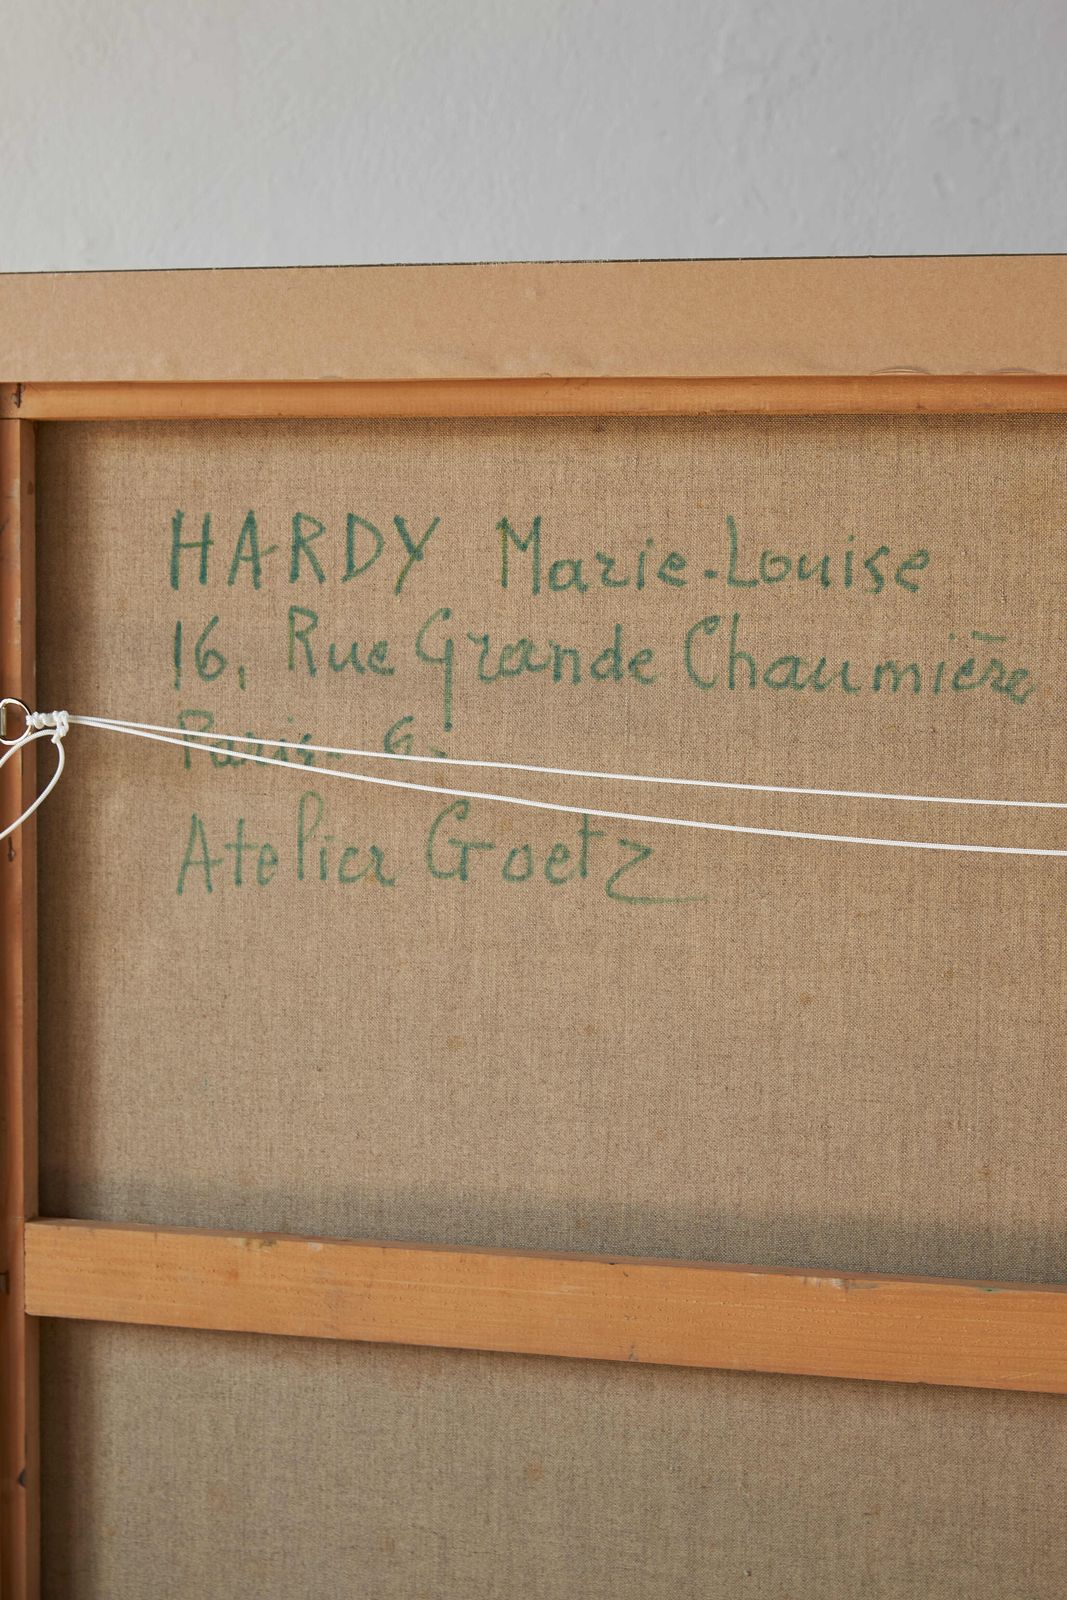 HARDY Marie-Louise
16, Rue Grande Chaumière
Paris- 6.
Atelier Goetz